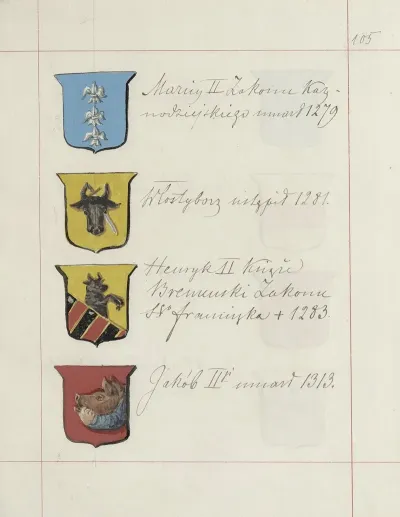 105
Marcin II Zakonu Kaz-
nodziejskiego umarł 1279
Włostyborz ustąpił 1281.
Henryk II Książe
Bremenski Zakonu
Sgo franciszka + 1283.
Jakób IIgi umarł 1313.